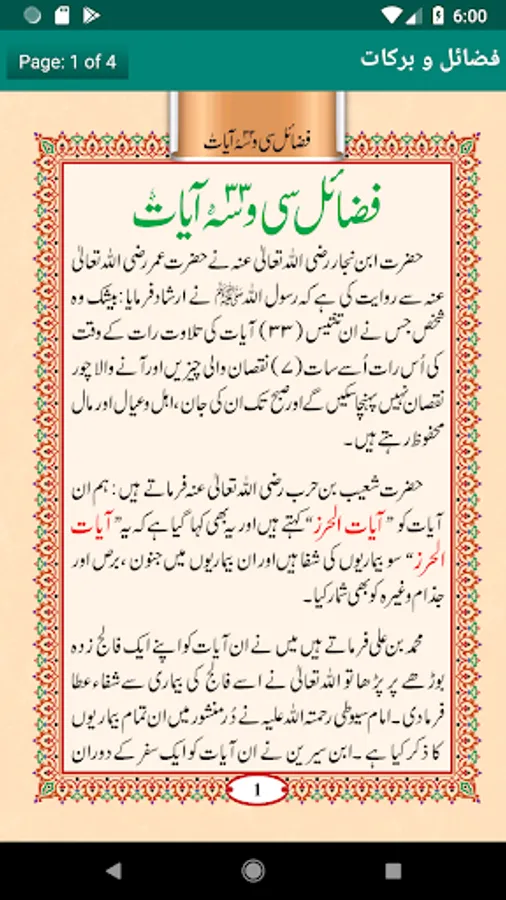 6:00
فضائل و برکات
Page: 1 of 4
فضائل سی و سہ ۳۳ آیات
فضائل سی و سہ ۳۳ آیات
حضرت ابن نجار رضی اللہ تعالیٰ عنہ نے حضرت عمر رضی اللہ تعالیٰ
عنہ سے روایت کی ہے کہ رسول اللہ ﷺ نے ارشاد فرمایا: بیشک وہ
شخص جس نے ان تینتیس (۳۳) آیات کی تلاوت رات کے وقت
کی اُس رات اُسے سات (۷) نقصان والی چیزیں اور آنے والا چور
نقصان نہیں پہنچا سکیں گے اور صبح تک ان کی جان، اہل و عیال اور مال
محفوظ رہتے ہیں۔
حضرت شعیب بن حرب رضی اللہ تعالیٰ عنہ فرماتے ہیں: ہم ان
آیات کو ”آیات الحرز“ کہتے ہیں اور یہ بھی کہا گیا ہے کہ یہ ”آیات
الحرز“ سو بیماریوں کی شفا ہیں اور ان بیماریوں میں جنون، برص اور
جذام وغیرہ کو بھی شمار کیا۔
محمد بن علی فرماتے ہیں میں نے ان آیات کو اپنے ایک فالج زدہ
بوڑھے پر پڑھا تو اللہ تعالیٰ نے اسے فالج کی بیماری سے شفاء عطا
فرما دی۔ امام سیوطی رحمتہ اللہ علیہ نے دُرِّ منثور میں ان تمام بیماریوں
کا ذکر کیا ہے۔ ابن سیرین نے ان آیات کو ایک سفر کے دوران
1